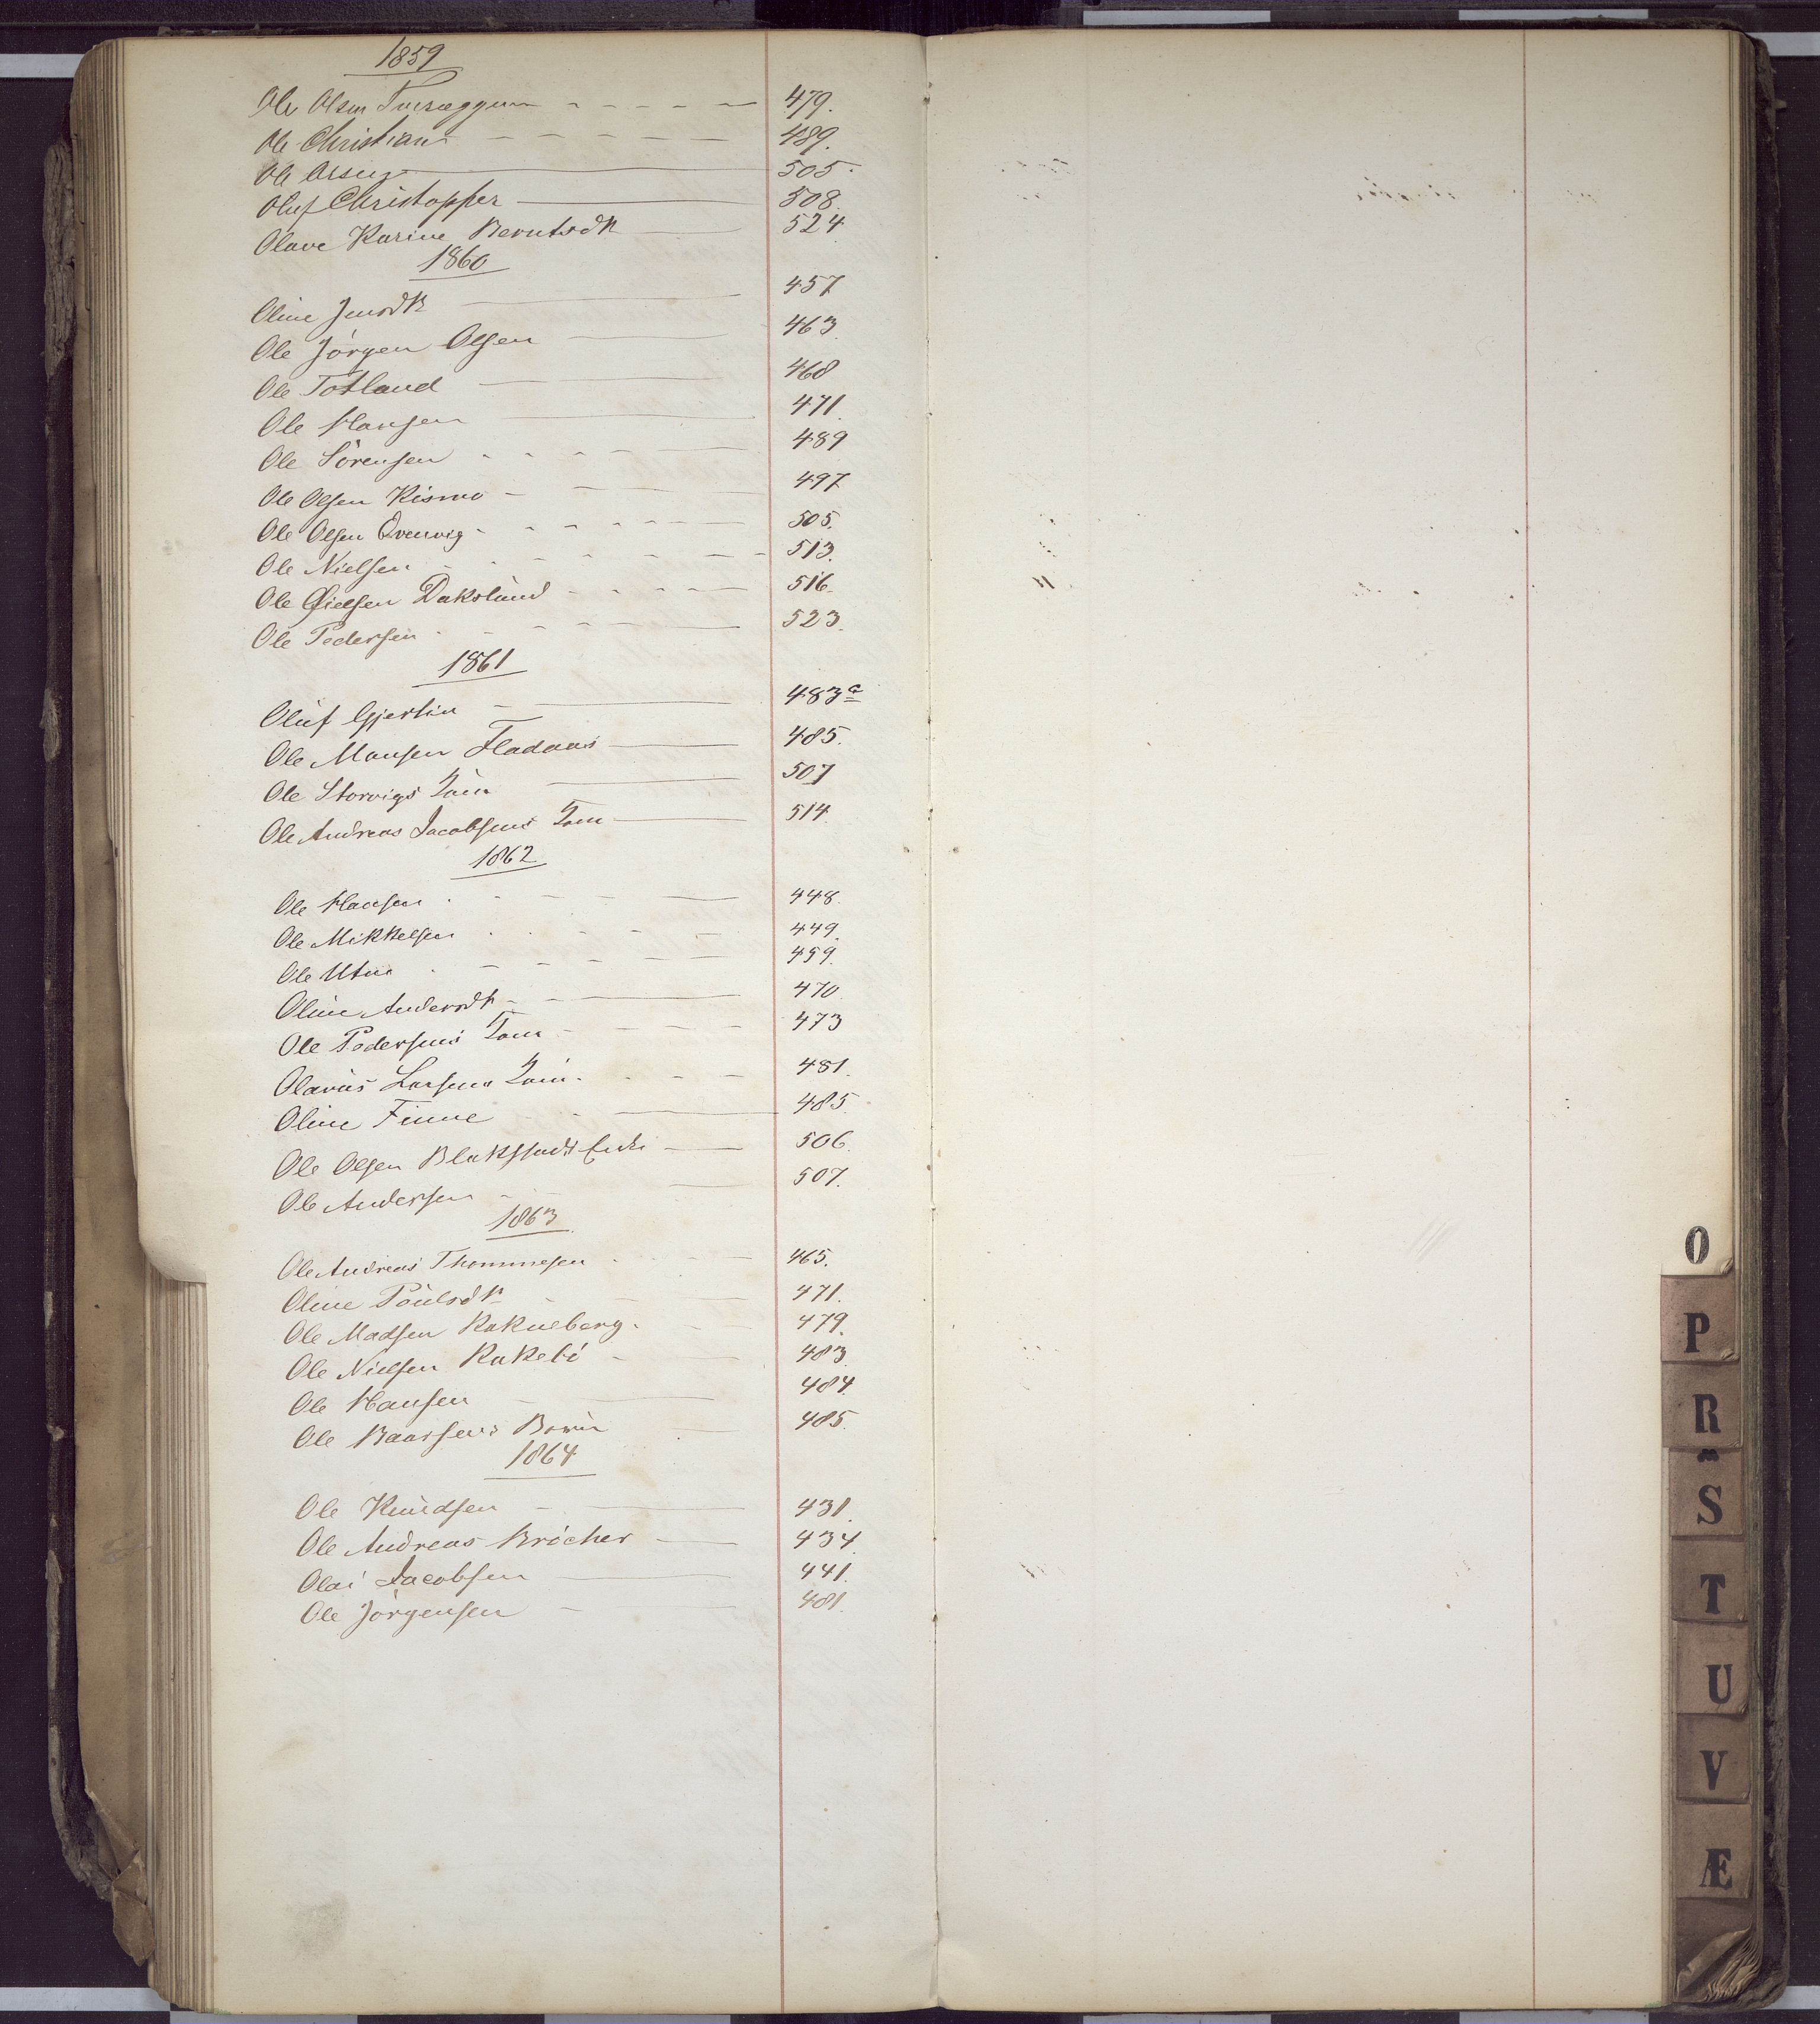 1859
Ole Olsen 479.
Ole Christian 489.
Ole 505.
Oluf Christopher 508.
Olave Karine Berntsdtr 524
1860
Oline Jensdtr 457
Ole Jörgen Olsen 463.
Ole Totland 468
Ole Hansen 471.
Ole Sörensen 489
Ole Olsen Kismo 497
Ole Olsen Qvenvig 505.
Ole Nielsen 513.
Ole Daksland 516.
Ole Pedersen 523.
1861
Oluf Gjertin 483a
Ole Monsen Fladaas 485.
Ole Storvigs 507
Ole Andreas Jacobsens 514.
1862
Ole Hansen 448.
Ole Mikkelsen 449.
Ole Utne 459.
Oline Andersdtr 470.
Ole Pedersens 473
Olavus Larsens 481.
Oline Finne 485.
Ole Olsen Blakstads Enke 506.
Ole Andersen 507.
1863
Ole Andreas Thommesen 465.
Oline Poulsdtr 471.
Ole Madsen Kokneberg 479.
Ole Nielsen Rakebö 483.
Ole Hansen 484.
Ole Baarsens 485.
1864
Ole Knudsen 431.
Ole Andreas Bröcher 434.
Olai Jacobsen 441.
Ole Jörgensen 481.
O
P
R
S
T
U
V
Æ